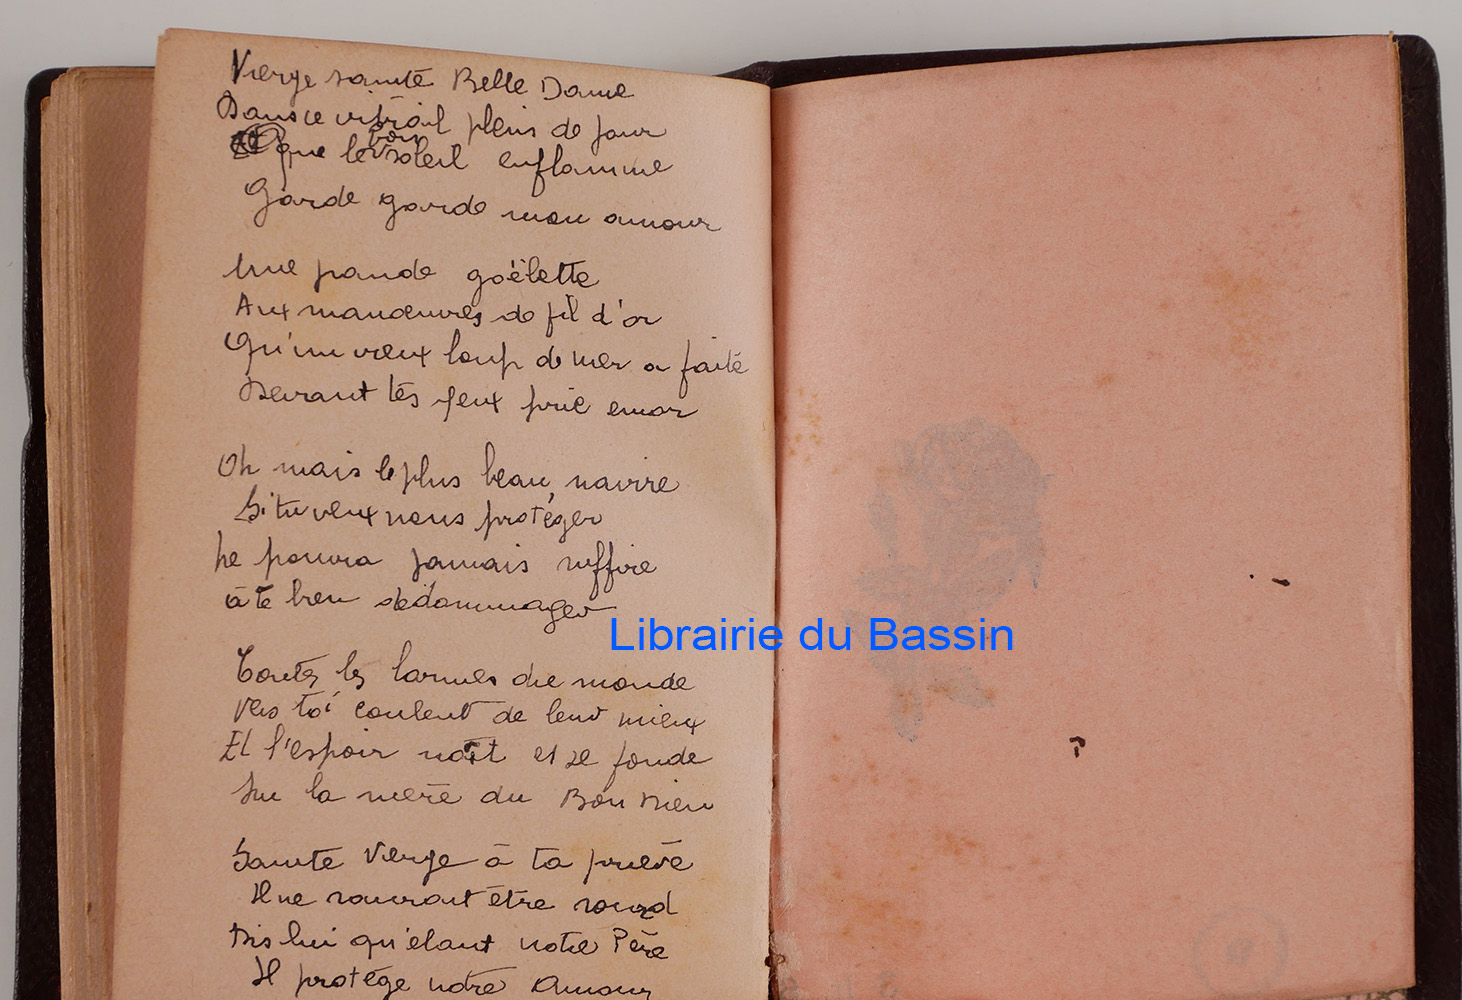 Vierge sainte Belle Dame
Dans ce vitrail plein de jour
que le bon soleil enflamme
Garde garde mon amour
Une grande goëlette
Aux manœuvres de fil d'or
Qu'un vieux loup de mer a faite
Devant tes yeux prie encor
Oh mais le plus beau navire
Si tu veux nous protéger
Ne pourra jamais suffire
à te bien dédommager
Toutes les larmes du monde
Vers toi coulent de leur mieux
Et l'espoir naît et se fonde
Sur la mère du Bon Dieu
Sainte Vierge à ta prière
Il ne saurait être sourd
Dis lui qu'étant notre Père
Il protège notre Amour
Librairie du Bassin